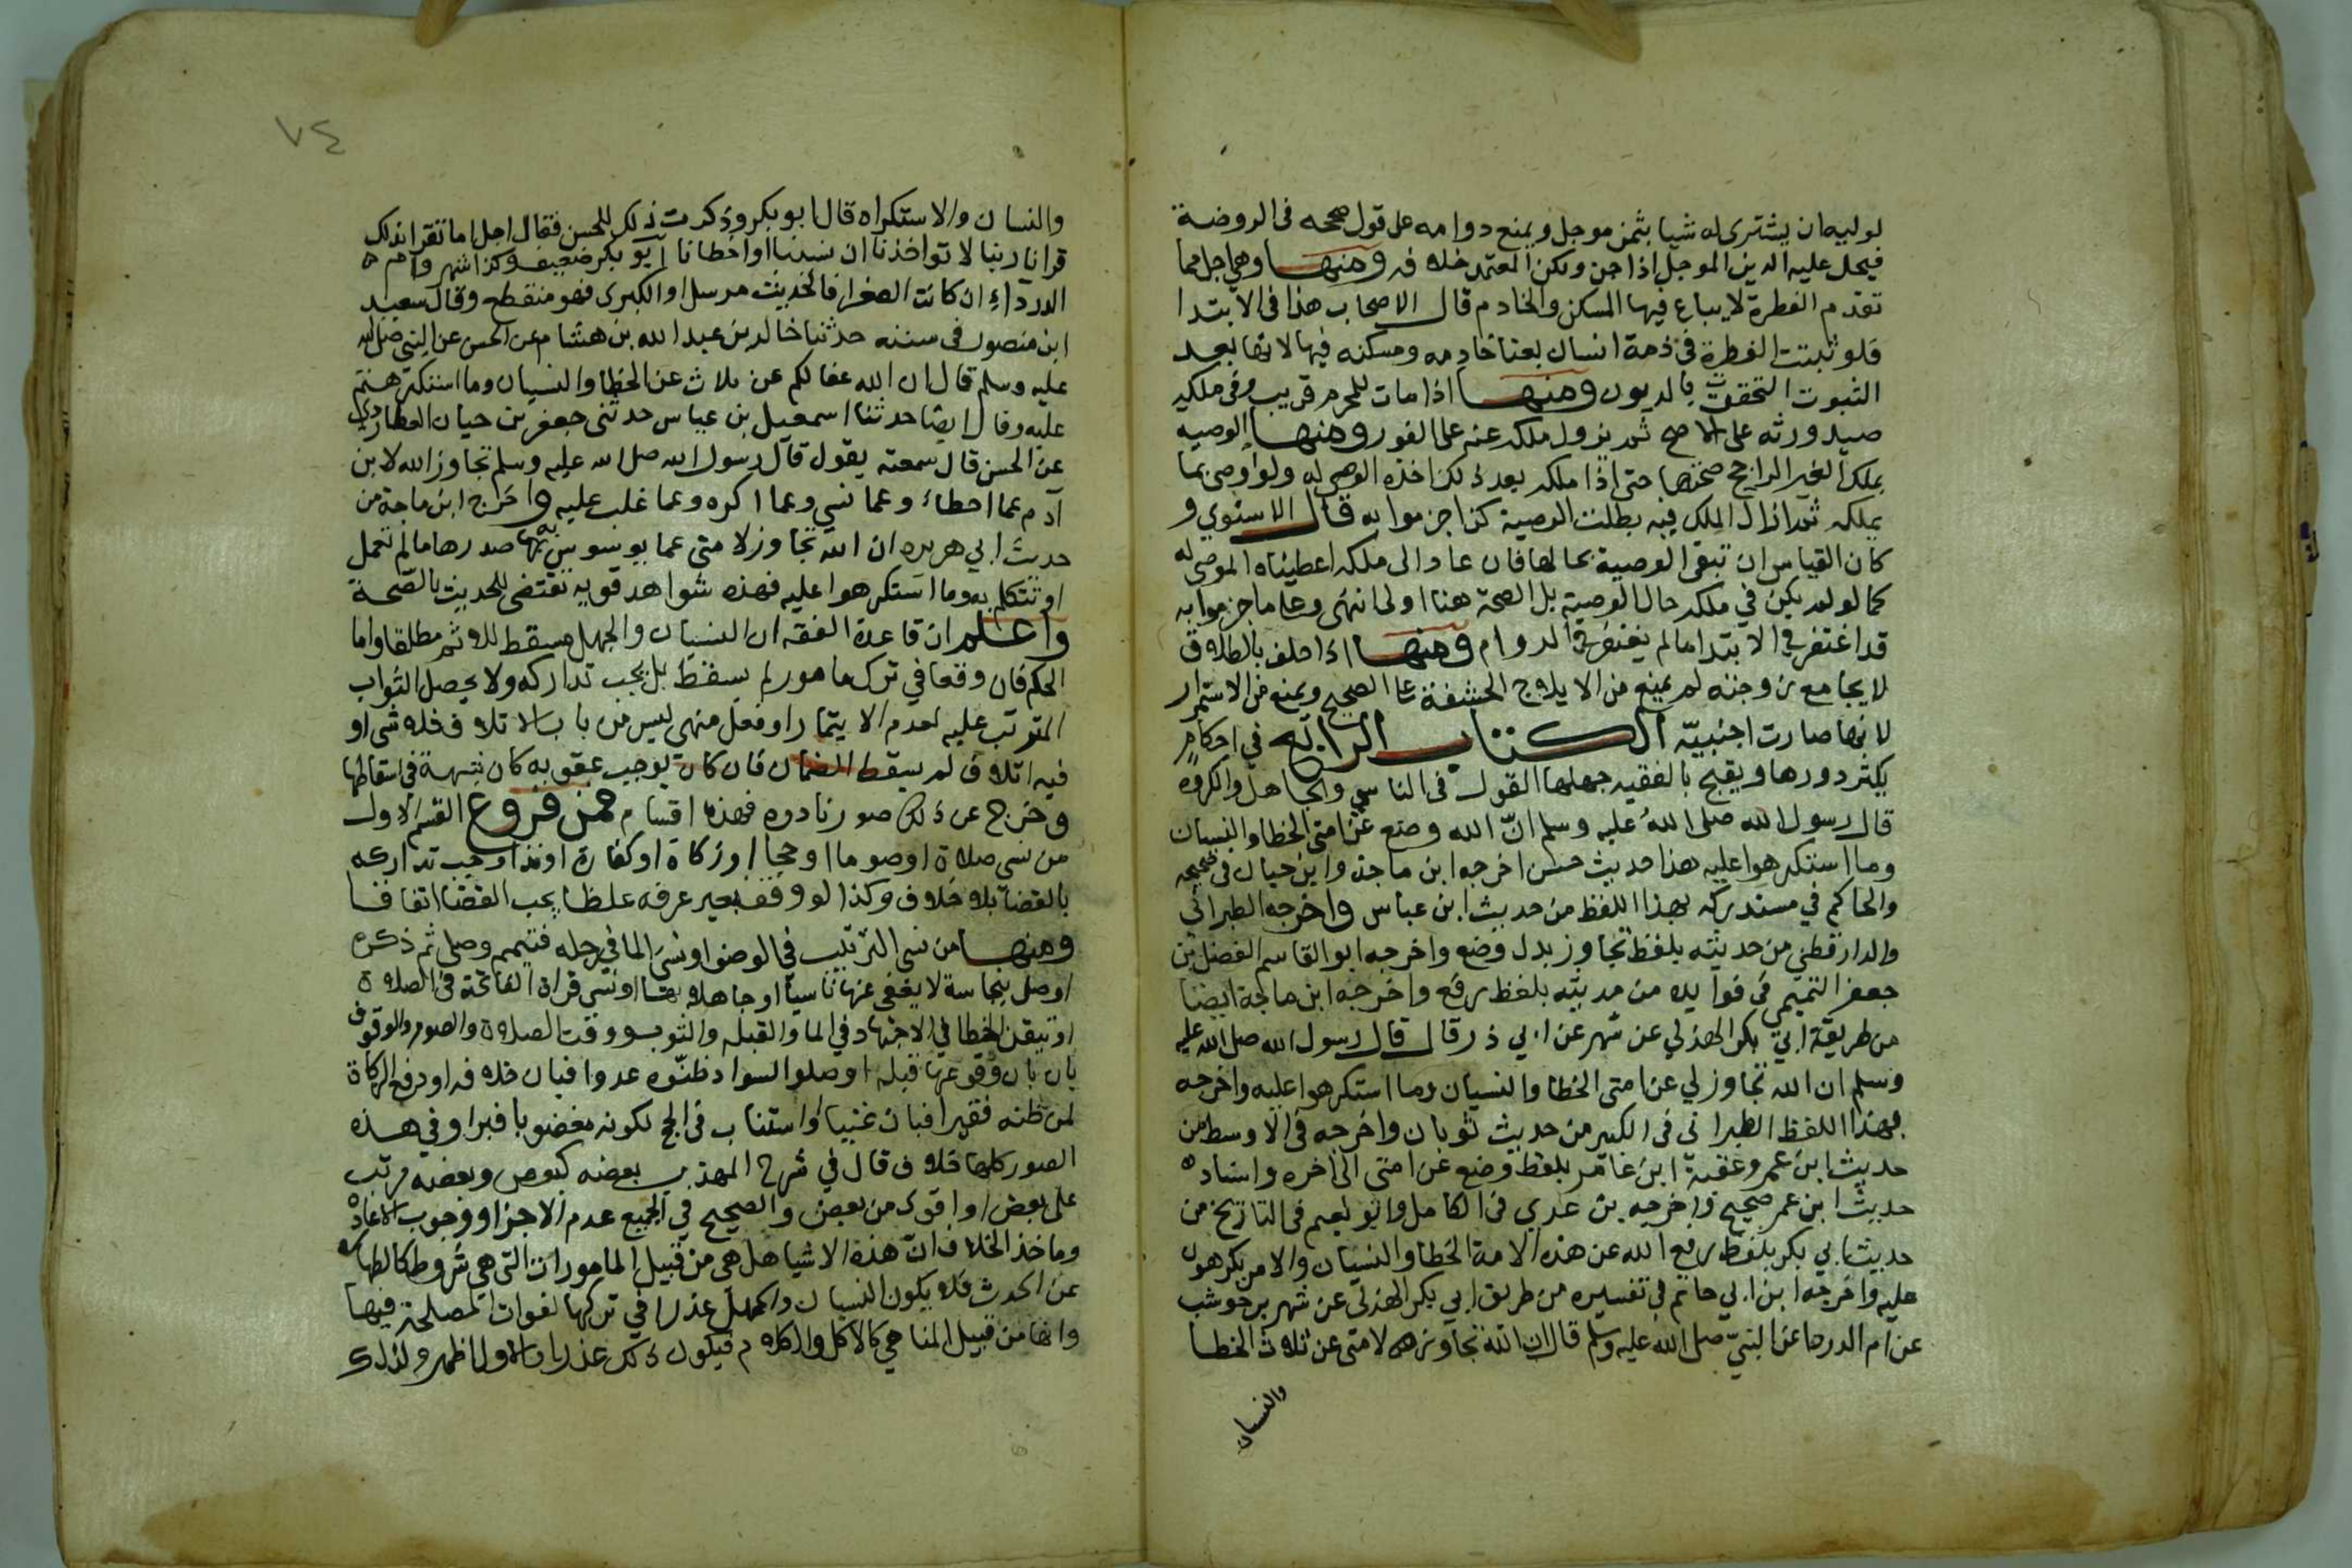 لوليه ان يشترى له شيا بثمن موجل ويمنع دوامه على قول صححه فى الروضة
فيحل عليه الدين الموجل اذا جن ولكن المعتمد خلافه ومنها وهى اجل مما
تقدم الفطرة لا يباع فيها المسكن والخادم قال الاصحاب هذا فى الابتدا
فلو ثبتت الفطرة فى ذمة انسان بعنا خادمه ومسكنه فيها لانها بعد
الثبوت التحقت بالديون ومنها اذا مات للمحرم قريب وفى ملكه
صيد ورثه على الاصح ثم يزول ملكه عنه على الفور ومنها الوصيه
بملك الغير الراجح صحتها حتى اذا ملكه بعد ذلك اخذه الموصى له ولو اوصى بما
يملكه ثم ازال الملك فيه بطلت الوصية كذا جزموا به قال الاسنوي و
كان القياس ان تبقى الوصية بحالها فان عاد الى ملكه اعطيناه الموصى له
كما لو لم يكن في ملكه حال الوصية بل الصحة هنا اولى انتهى وعلى ما جزموا به
قد اغتفر في الابتدا ما لم يغتفر في الدوام ومنها اذا حلف بالطلاق
لا يجامع زوجته لم يمنع من الايلاج الحشفة على الصحيح ويمنع من الاستمرار
لانها صارت اجنبيّة الكتاب الرابع في احكام
يكثر دورها ويقبح بالفقيه جهلها القول فى الناسي والجاهل والمكره
قال رسول الله صلى الله عليه وسلم انّ الله وضع عن امتى الخطا والنسيان
وما استكرهوا عليه هذا حديث حسن اخرجه ابن ماجة وابن حبان فى صحيحه
والحاكم في مستدركه بهذا اللفظ من حديث ابن عباس واخرجه الطبرانى
والدارقطني من حديثه بلفظ تجاوز بدل وضع واخرجه ابو القاسم الفضل بن
جعفر التميمي في فوايده من حديثه بلفظ رفع واخرجه ابن ماجة ايضا
من طريقة ابي بكر الهذلي عن شهر عن ابي ذر قال قال رسول الله صلى الله عليه
وسلم ان الله تجاوز لي عن امتى الخطا والنسيان وما استكرهوا عليه واخرجه
بهذا اللفظ الطبرانى فى الكبير من حديث ثوبان واخرجه فى الاوسط من
حديث ابن عمر وعقبة ابن عامر بلفظ وضع عن امتى الى اخره واسناد
حديث ابن عمر صحيح واخرجه بن عدي فى الكامل وابو نعيم فى التاريخ من
حديث ابي بكر بلفظ رفع الله عن هذه الامة الخطا والنسيان والامر يكرهون
عليه واخرجه ابن ابي حاتم في تفسيره من طريق ابي بكر الهذلى عن شهر بن حوشب
عن ام الدرداء عن النبيّ صلى الله عليه وسلم قال ان الله تجاوز لامتى عن ثلاث الخطا
والنسيان
٧٤
والنسيان والاستكراه قال ابو بكر وذكرت ذلك للحسن فقال اجل اما تقرا بذلك
قرانا ربنا لا تواخذنا ان نسينا او اخطانا ابو بكر ضعيف وكذا شهر وام
الدرداء ان كانت الصغرا فالحديث مرسل او الكبرى فهو منقطع وقال سعيد
ابن منصور فى سننه حدثنا خالد بن عبد الله بن هشام عن الحسن عن النبي صلى الله
عليه وسلم قال ان الله عفا لكم عن ثلاث عن الخطا والنسيان وما استكرهتم
عليه وقال ايضا حدثنا اسمعيل بن عياش حدثنى جعفر بن حيان العطاردي
عن الحسن قال سمعته يقول قال رسول الله صلى الله عليه وسلم تجاوز الله لابن
آدم عما اخطاء وعما نسي وعما اكره وعما غلب عليه واخرج ابن ماجة من
حديث ابي هريره ان الله تجاوز لامتى عما يوسوس به صدرها ما لم تعمل
او تتكلم به وما استكرهوا عليه فهذه شواهد قويه تقتضى للحديث بالصحة
واعلم ان قاعدة الفقه ان النسيان والجهل مسقط للاثم مطلقا واما
الحكم فان وقعا في ترك مامور لم يسقط بل يجب تداركه ولا يحصل الثواب
المترتب عليه لعدم الايتمار او فعل منهى ليس من باب الاتلاف فلا شى او
فيه اتلاف لم يسقط الضمان فان كان يوجب عقوبه كان شبهة في اسقاطها
وخرج عن ذلك صور نادره فهذه اقسام فمن فروع القسم الاول
من نسى صلاة او صوما او حجا او زكاة او كفارة او نذرا وجب تداركه
بالقضا بلا خلاف وكذا لو وقف بغير عرفه غلطا يجب القضا اتفاقا
ومنها من نسى الترتيب في الوضو او نسى الما في رحله فتيمم وصلى ثم ذكره
او صلى بنجاسة لا يعفى عنها ناسيا او جاهلا بها او نسى قراة الفاتحة فى الصلاة
او تيقن الخطا في الاجتهاد في الما والقبله والثوب ووقت الصلاة والصوم والوقوف
بان بان وقوعها قبله او صلوا لسواد ظنّوه عدوا فبان خلافه او دفع الزكاة
لمن ظنه فقيرا فبان غنيا او استناب فى الحج لكونه معضوبا فبرا وفي هذه
الصور كلها خلاف قال في شرح المهذب بعضه كبعض وبعضه مرتب
على بعض او اقوى من بعض والصحيح في الجميع عدم الاجزا ووجوب الاعادة
وماخذ الخلاف انّ هذه الاشيا هل هى من قبيل المامورات التى هي شروط كالطهارة
عن الحدث فلا يكون النسيان والجهل عذرا في تركها لفوات المصلحة فيها
وانها من قبيل المناهي كالاكل والكلام فيكون ذلك عذرا والاول اظهر ولذلك